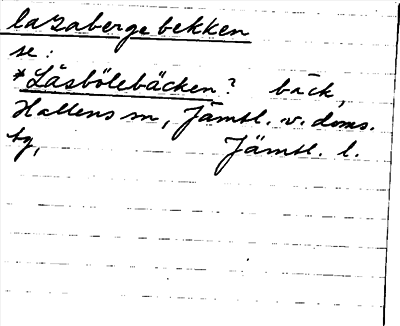 lazaberge bekken
se:
*Låsbölebäcken? bäck,
Hallens sn, Jämtl. v. doms.
tg, Jämtl. l.